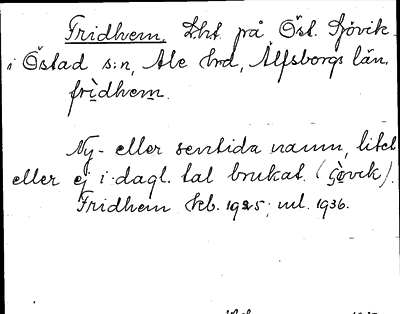 Fridhem. Lht på Öst. Sjövik
i Östad s:n, Ale hrd, Älfsborgs län.
frìdhem.
Ny- eller sentida namn, litet
eller ej i dagl. tal brukat. (ʃövik).
Fridhem kb. 1925; ml. 1936.